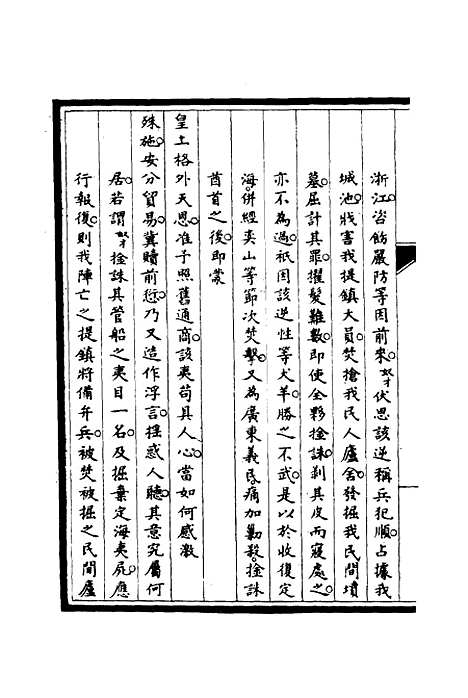 浙江咨飭嚴防等因前來奴才伏思該逆稱兵犯順占據我
城池戕害我提鎮大員焚搶我民人廬舍發掘我民間墳
墓屈計其罪擢髮難數即使全夥捡誅剝其皮而寢處之
亦不為過祇因該逆性等犬羊勝之不武是以於收復定
海併經奕山等節次焚擊又為廣東義民痛加勦殺捡誅
酋首之後即蒙
皇上格外天恩准予照舊通商該夷苟具人心當如何感激
殊施安分貿易冀贖前愆乃又造作浮言搖惑人聽其意究屬何
居若謂奴才捡誅其管船之夷目一名及掘棄定海夷屍應
行報復則我陣亡之提鎮將備弁兵被焚被掘之民間廬